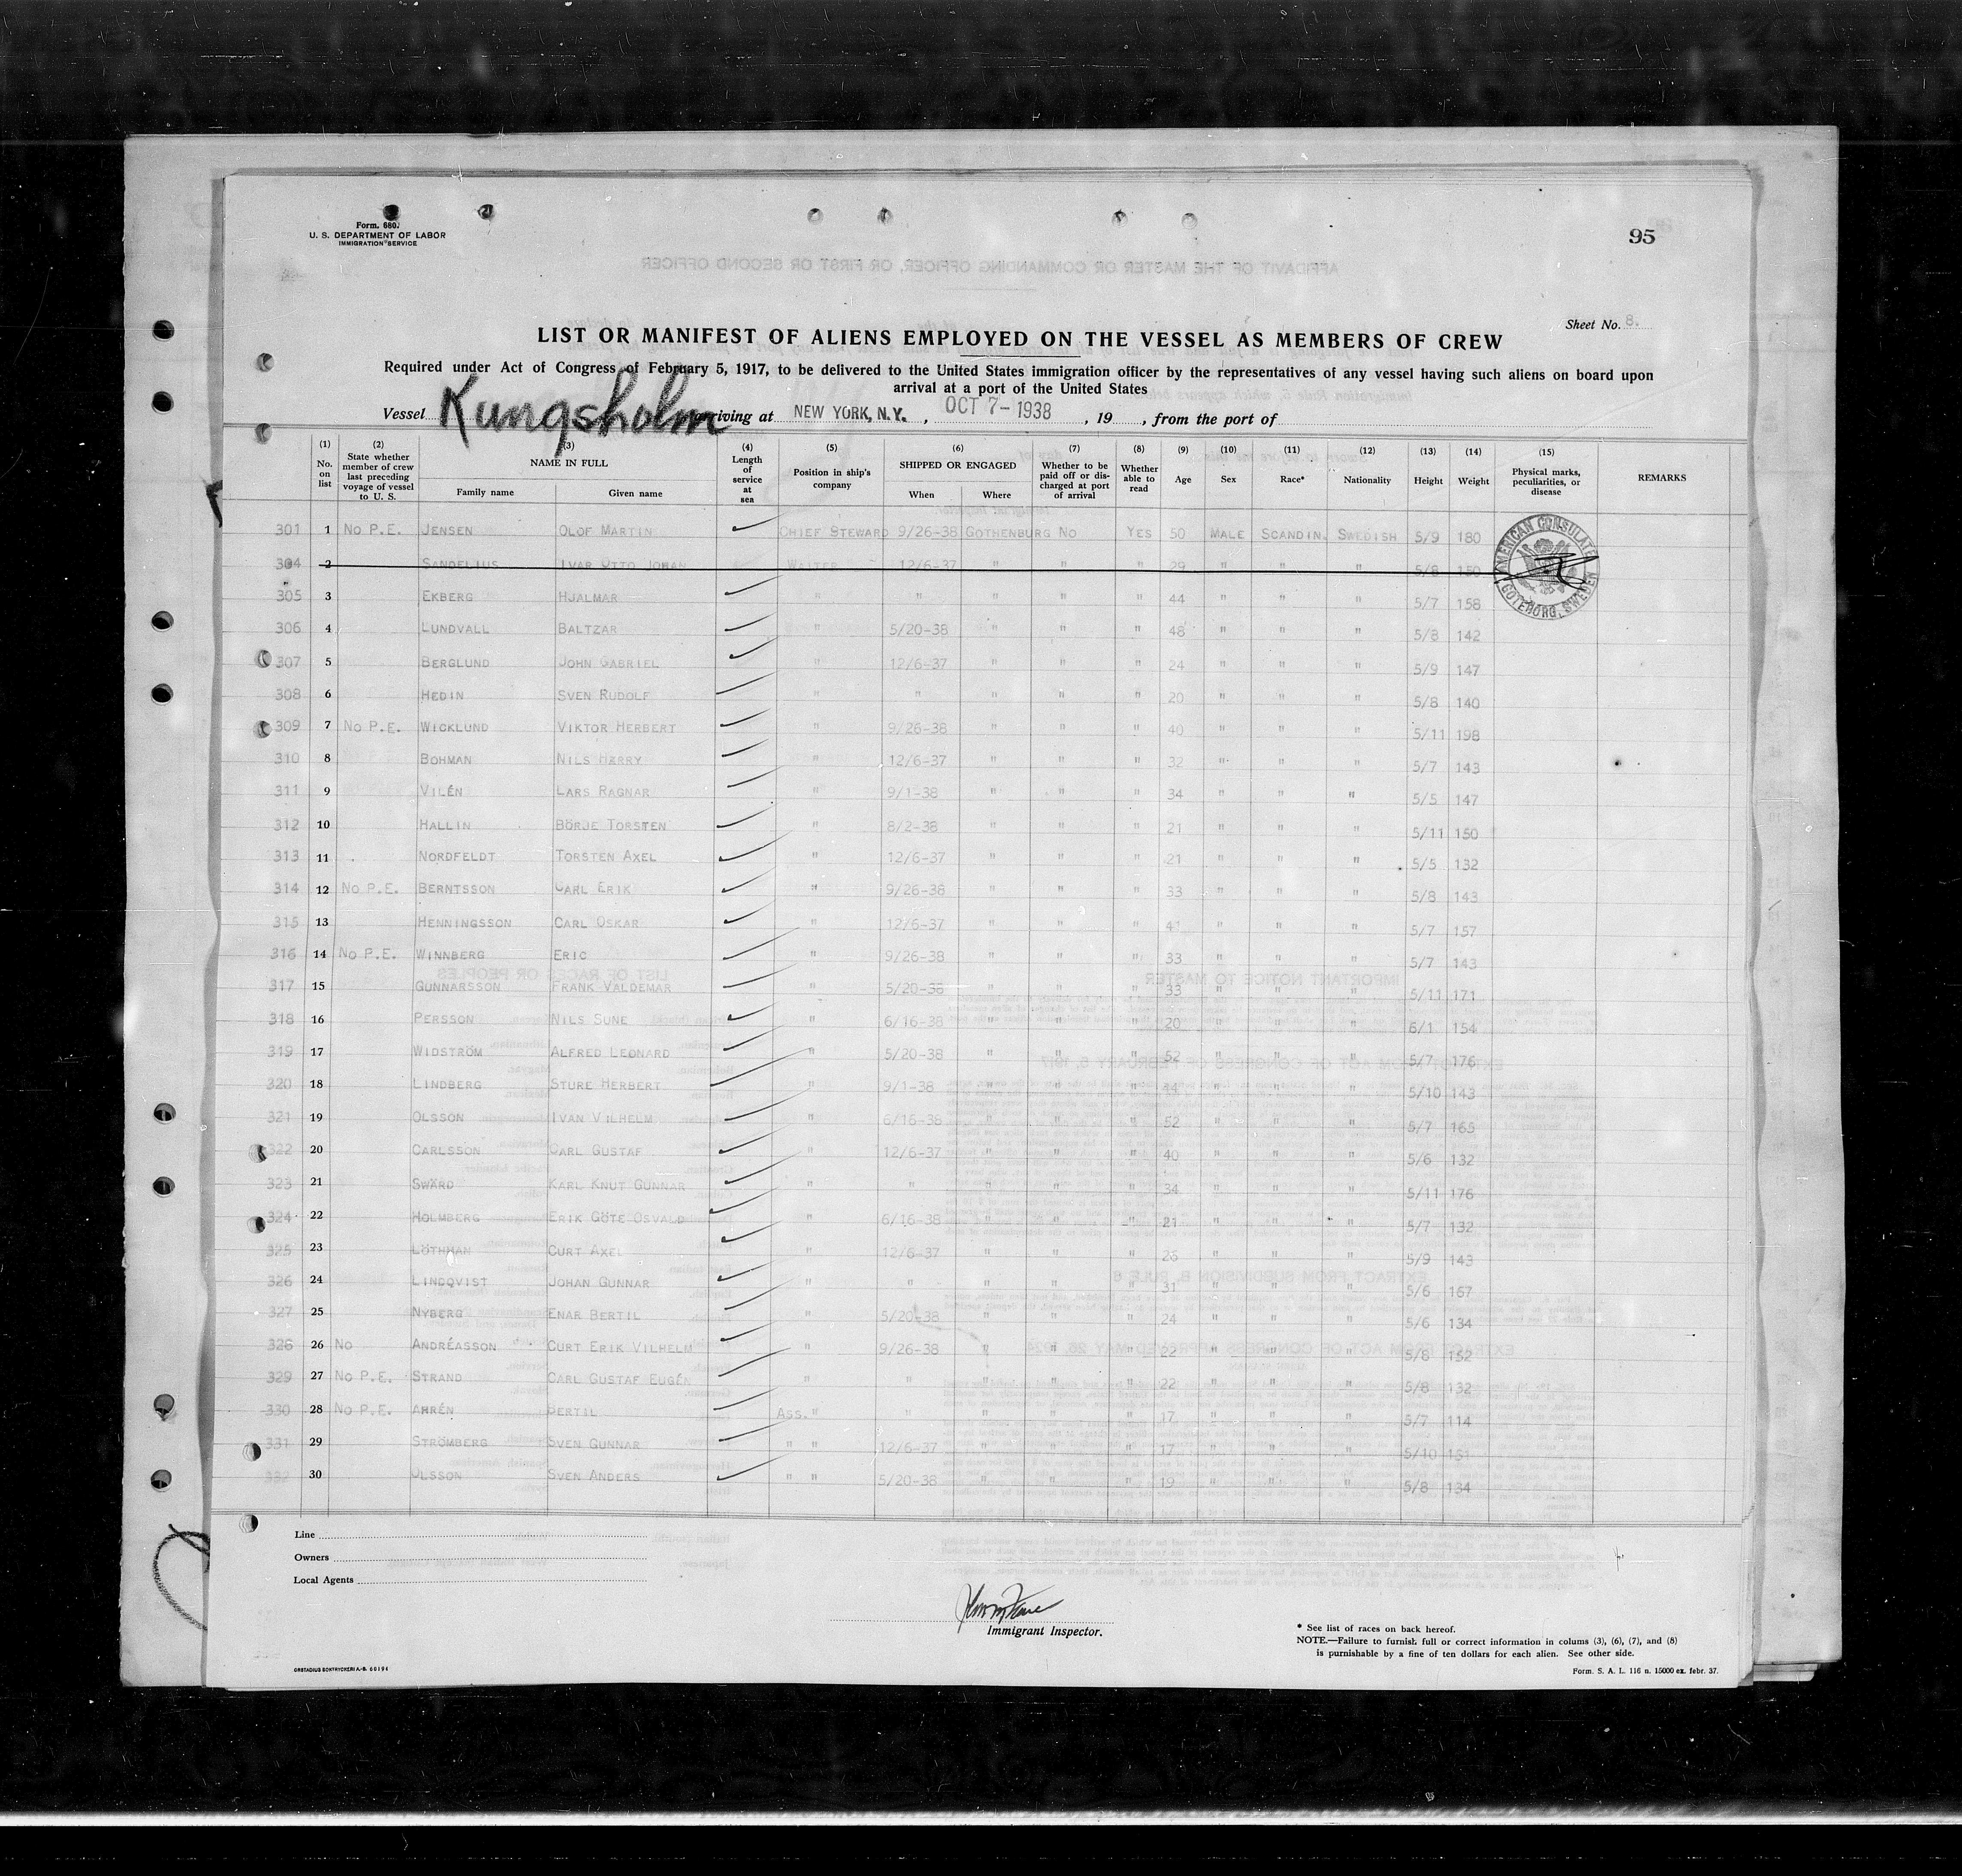 Form. 680.
U. S. DEPARTMENT OF LABOR
IMMIGRATION SERVICE
95
Sheet No. 8.
LIST OR MANIFEST OF ALIENS EMPLOYED ON THE VESSEL AS MEMBERS OF CREW
Required under Act of Congress of February 5, 1917, to be delivered to the United States immigration officer by the representatives of any vessel having such aliens on board upon
arrival at a port of the United States
Vessel Kungsholm arriving at NEW YORK, N.Y. , OCT 7-1938 , 19 , from the port of
(1) No. on list (2) State whether member of crew last preceding voyage of vessel to U. S. (3) NAME IN FULL Family name Given name (4) Length of service at sea (5) Position in ship's company (6) SHIPPED OR ENGAGED When Where (7) Whether to be paid off or discharged at port of arrival (8) Whether able to read (9) Age (10) Sex (11) Race* (12) Nationality (13) Height (14) Weight (15) Physical marks, peculiarities, or disease REMARKS
301 1 No P.E. JENSEN OLOF MARTIN CHIEF STEWARD 9/26-38 GOTHENBURG No YES 50 MALE SCANDIN. SWEDISH 5/9 180
304 2 SANDELIUS IVAR OTTO JOHAN WAITER 12/6-37 " " 29 " " " 5/8 150
305 3 EKBERG HJALMAR " " " " " 44 " " " 5/7 158
306 4 LUNDVALL BALTZAR " 5/20-38 " " " 48 " " " 5/8 142
307 5 BERGLUND JOHN GABRIEL " 12/6-37 " " " 24 " " " 5/9 147
308 6 HEDIN SVEN RUDOLF " " " " " 20 " " " 5/8 140
309 7 No P.E. WICKLUND VIKTOR HERBERT " 9/26-38 " " " 40 " " " 5/11 198
310 8 BOHMAN NILS HARRY " 12/6-37 " " " 32 " " " 5/7 143
311 9 VILÉN LARS RAGNAR " 9/1-38 " " " 34 " " " 5/5 147
312 10 HALLIN BÖRJE TORSTEN " 8/2-38 " " " 21 " " " 5/11 150
313 11 NORDFELDT TORSTEN AXEL " 12/6-37 " " " 21 " " " 5/5 132
314 12 No P.E. BERNTSSON CARL ERIK " 9/26-38 " " " 33 " " " 5/8 143
315 13 HENNINGSSON CARL OSKAR " 12/6-37 " " " 41 " " " 5/7 157
316 14 No P.E. WINNBERG ERIC " 9/26-38 " " " 33 " " " 5/7 143
317 15 GUNNARSSON FRANK VALDEMAR " 5/20-38 " " " 33 " " " 5/11 171
318 16 PERSSON NILS SUNE " 6/16-38 " " " 20 " " " 6/1 154
319 17 WIDSTRÖM ALFRED LEONARD " 5/20-38 " " " 52 " " " 5/7 176
320 18 LINDBERG STURE HERBERT " 9/1-38 " " " " " " 5/10 143
321 19 OLSSON IVAN VILHELM " 6/16-38 " " " 52 " " " 5/7 165
322 20 CARLSSON CARL GUSTAF " 12/6-37 " " " 40 " " " 5/6 132
323 21 SWÄRD KARL KNUT GUNNAR " " " " " 34 " " " 5/11 176
324 22 HOLMBERG ERIK GÖTE OSVALD " 6/16-38 " " " 21 " " " 5/7 132
325 23 LÖTHMAN CURT AXEL " 12/6-37 " " " 26 " " " 5/9 143
326 24 LINDQVIST JOHAN GUNNAR " " " " " 31 " " " 5/6 167
327 25 NYBERG ENAR BERTIL " 5/20-38 " " " 24 " " " 5/6 134
328 26 No ANDRÉASSON CURT ERIK VILHELM " 9/26-38 " " " 22 " " " 5/8 152
329 27 No P.E. STRAND CARL GUSTAF EUGÉN " " " " " 22 " " " 5/8 132
330 28 No P.E. AHRÉN BERTIL ASS." " " " " 17 " " " 5/7 114
331 29 STRÖMBERG SVEN GUNNAR " " 12/6-37 " " " 17 " " " 5/10 151
332 30 OLSSON SVEN ANDERS " " 5/20-38 " " " 19 " " " 5/8 134
AMERICAN CONSULATE
GOTEBORG, SWEDEN
Line
Owners
Local Agents
Immigrant Inspector.
* See list of races on back hereof.
NOTE.—Failure to furnish full or correct information in colums (3), (6), (7), and (8)
is punishable by a fine of ten dollars for each alien. See other side.
ORSTADIUS BOKTRYCKERI A.-B. 60194
Form. S. A. L. 116 n. 15000 ex. febr. 37.